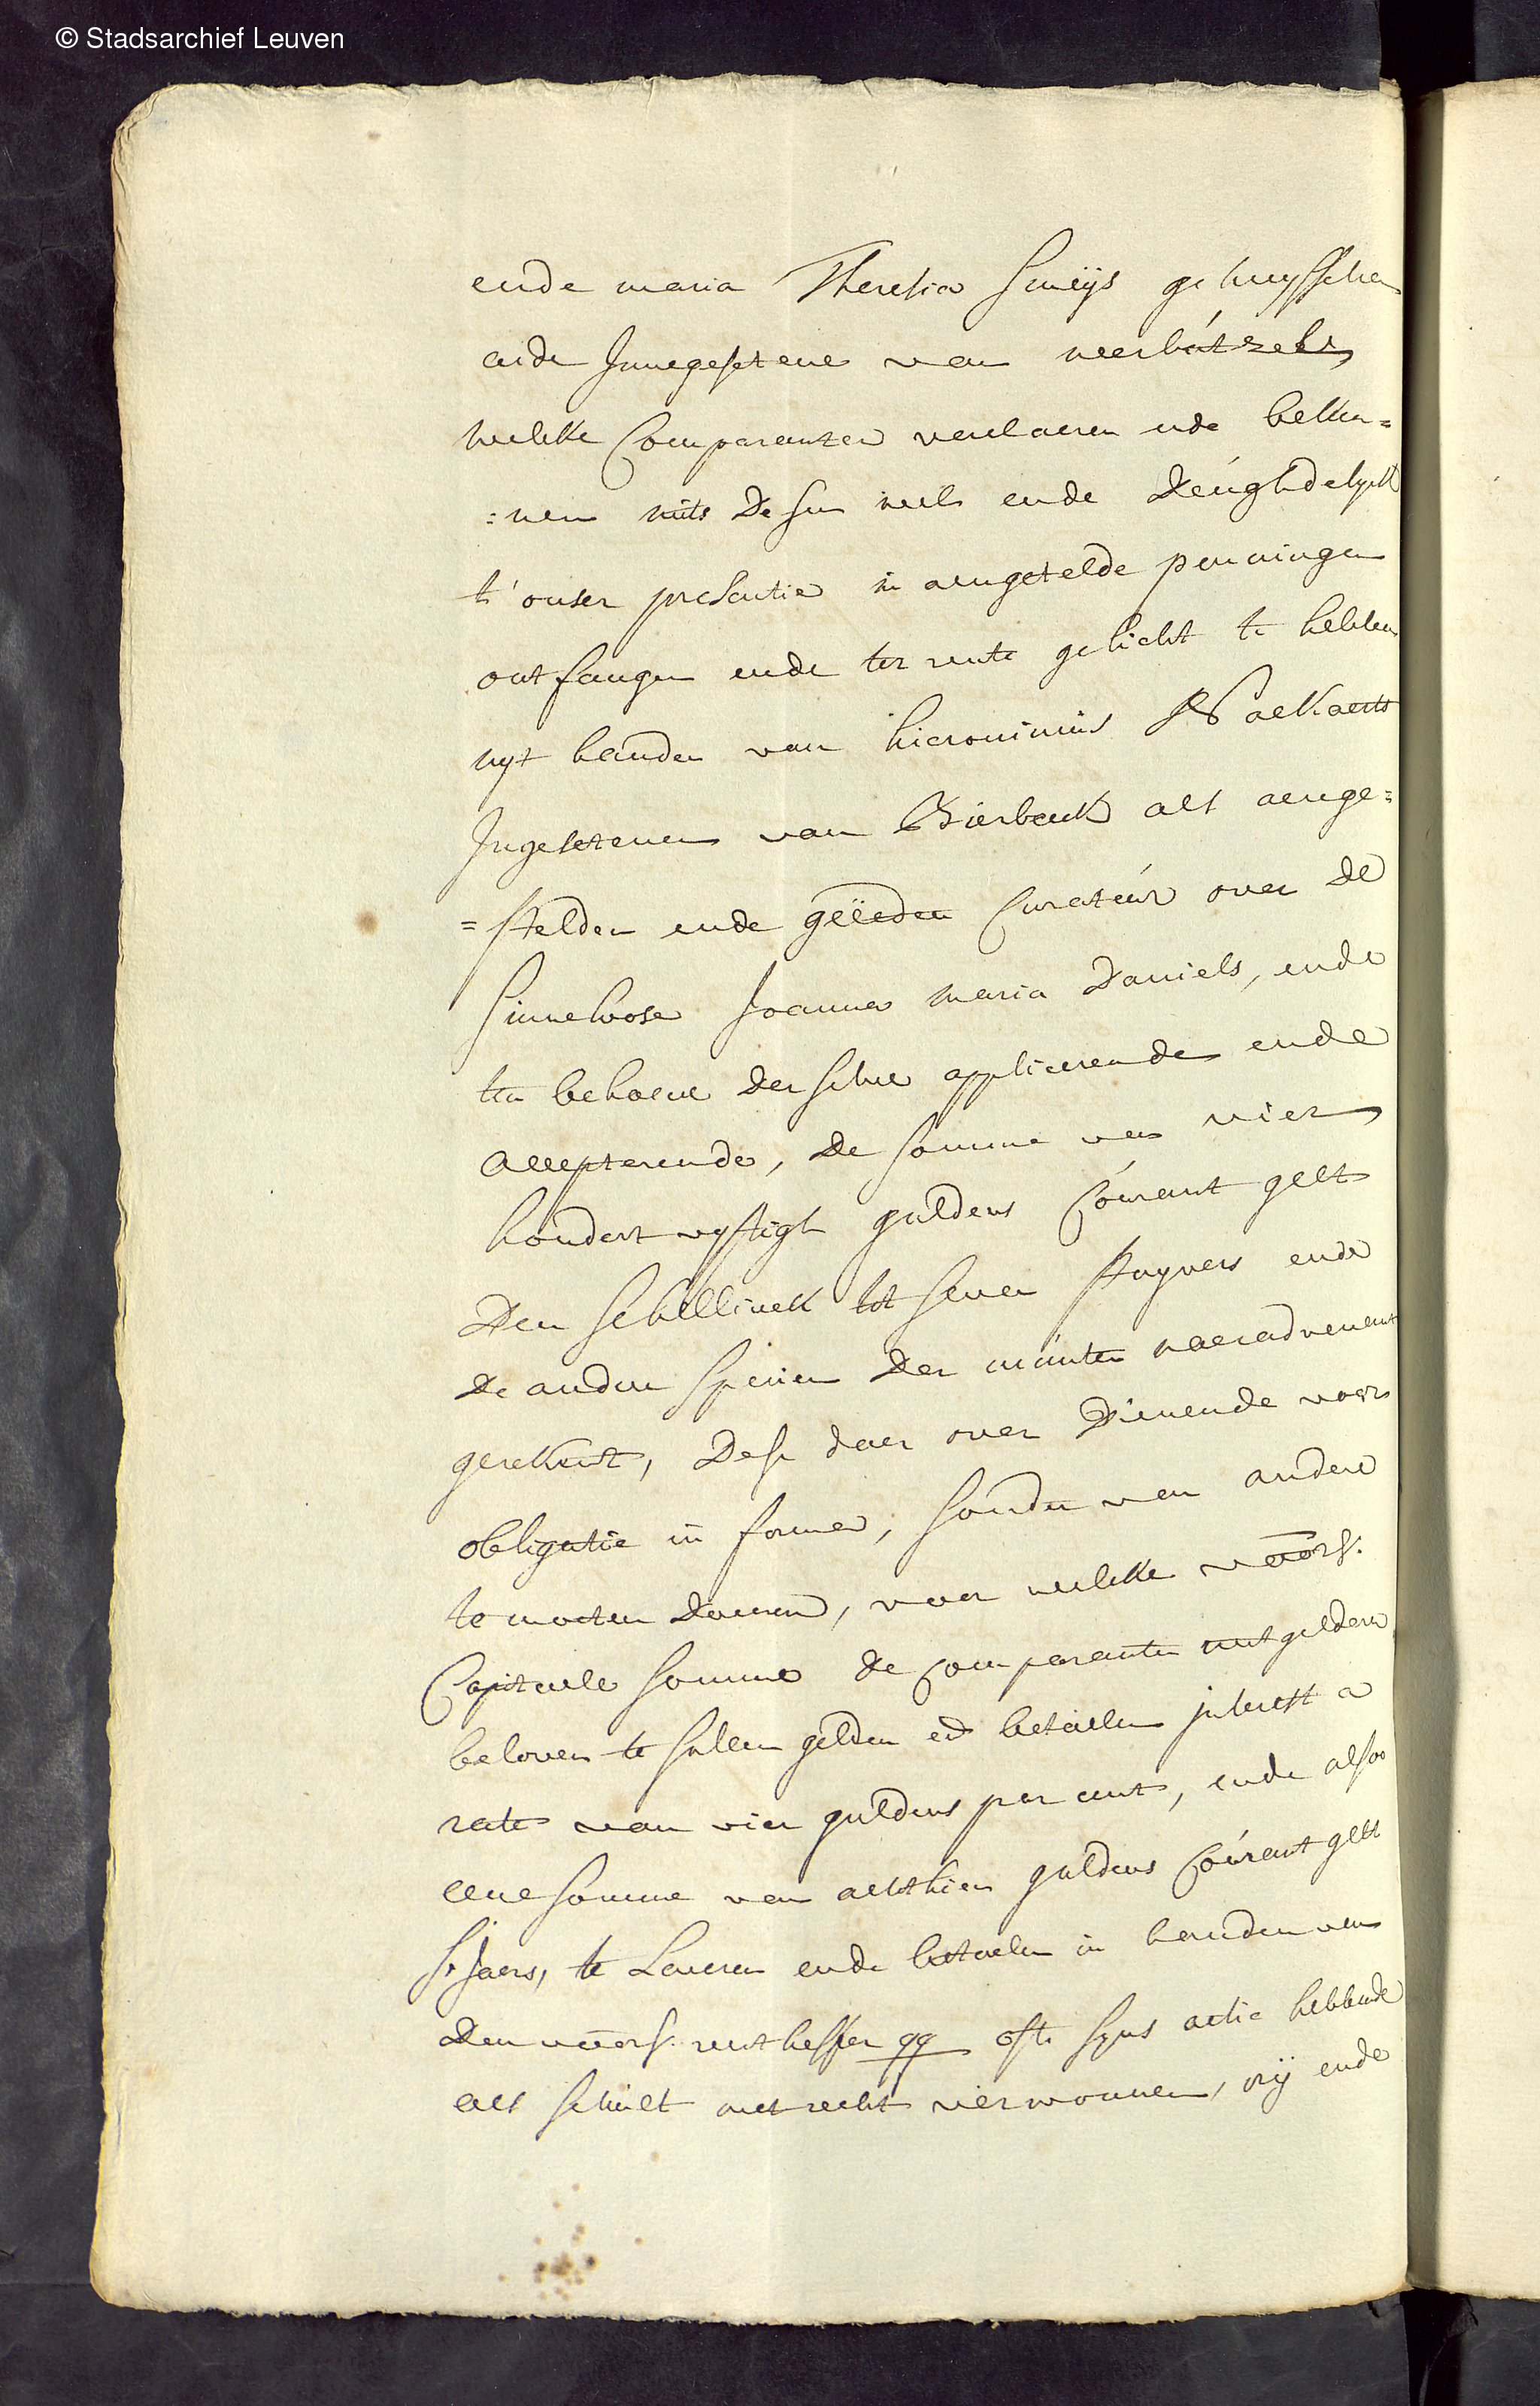 © Stadsarchief Leuven
ende maria Theresia Smeijs gehuysschen
ende Innegesetene van neerbútzels
welcke Comparanten verclaeren ende beken=
=nen mits Desen wel ende Deúghdelyck
t'onser presentie in aengetelde penningen
ontfangen ende ter rente gelicht te hebben
uyt handen van hieronimus
Ingesetenen van Bierbeek als aenge=
=stelden ende geëeden Curateúr over de
sinneloose Joanna maria Daniels, ende
ten behoeve der selve applicerende ende
accepterende, De somme van vier
hondert vyftigh guldens Coúrant gelt
Den schellinck tot seven stuyvers ende
De andere specien Der múnten naeradvenant
gerekent, Dese daer over Dienende voor
obligatie in forma, sonder van andere
te moeten Doceren, voor welcke voors.
Capitaele somme de Comparanten rentgelders
beloven te sullen gelden en betaelen interest a
rate van vier guldens per cent, ende alsoo
eene somme van achthien guldens Coúrant gelt
s'Jaers, te Leveren ende betaelen in handen van
Den voors. rentheffer qq ofte syns actie hebbende
als schult met recht verwonnen, vrij ende